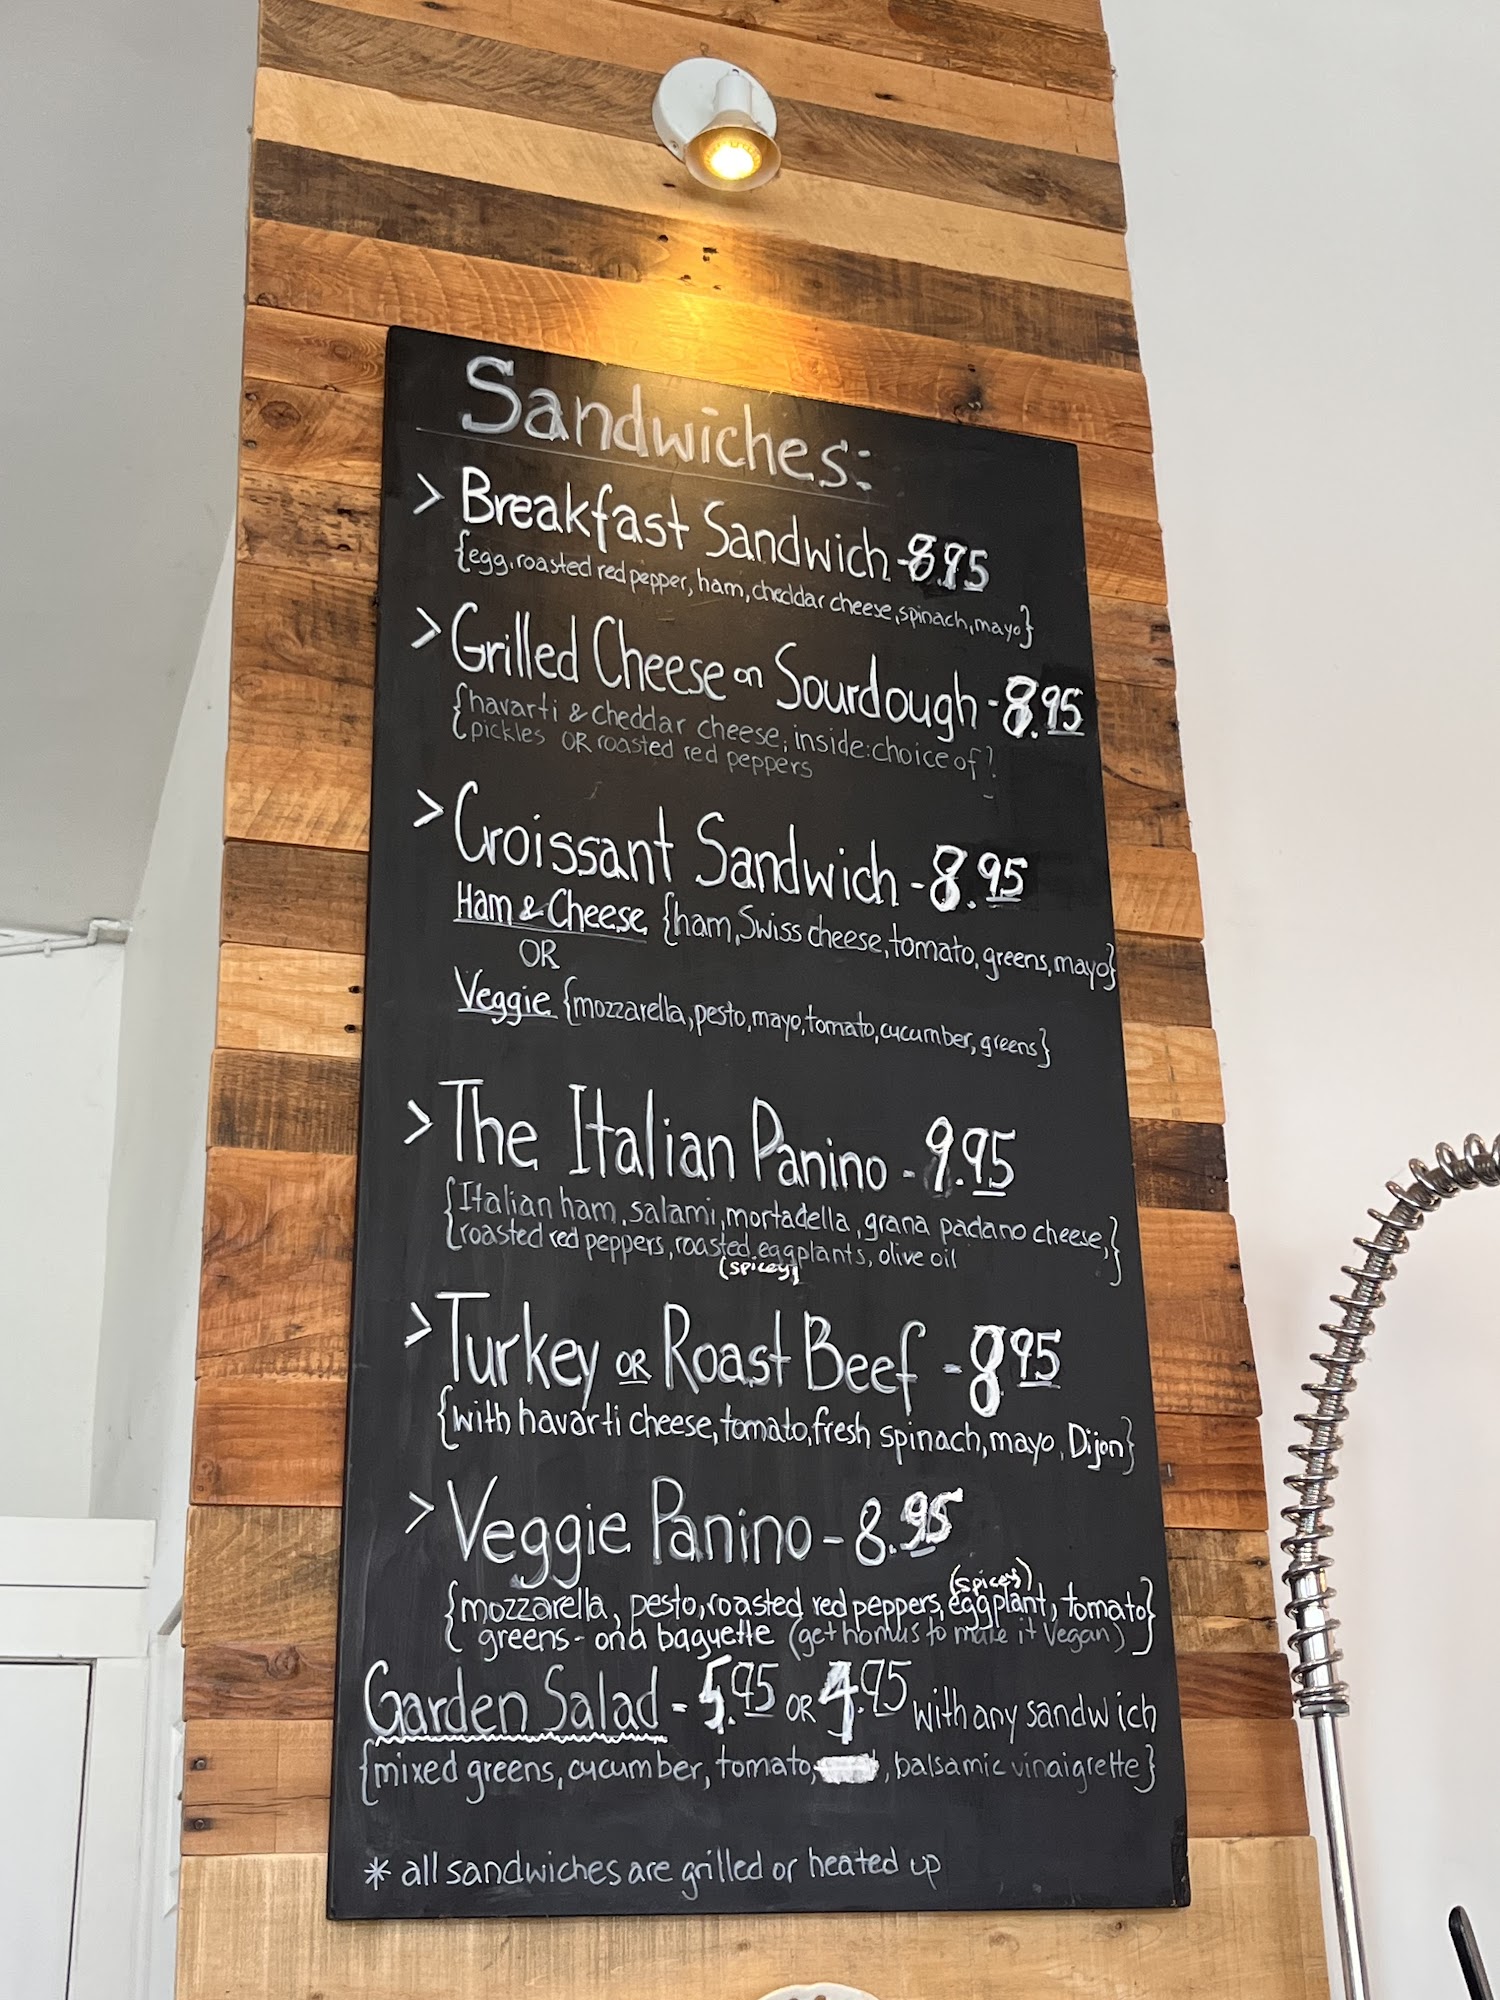 Sandwiches:
> Breakfast Sandwich - 8.95
{egg, roasted red pepper, ham, cheddar cheese, spinach, mayo}
> Grilled Cheese on Sourdough - 8.95
{havarti & cheddar cheese, inside: choice of
pickles OR roasted red peppers
> Croissant Sandwich - 8.95
Ham & Cheese {ham, Swiss cheese, tomato, greens, mayo}
OR
Veggie {mozzarella, pesto, mayo, tomato, cucumber, greens}
> The Italian Panino - 9.95
{Italian ham, salami, mortadella, grana padano cheese,}
roasted red peppers, roasted eggplants, olive oil
(spicey)
> Turkey OR Roast Beef - 8.95
{with havarti cheese, tomato, fresh spinach, mayo, Dijon}
> Veggie Panino - 8.95
(spicey)
{mozzarella, pesto, roasted red peppers, eggplant, tomato}
greens - on a baguette (get homus to make it Vegan)
Garden Salad - 5.95 OR 4.95 with any sandwich
{mixed greens, cucumber, tomato, , balsamic vinaigrette}
* all sandwiches are grilled or heated up